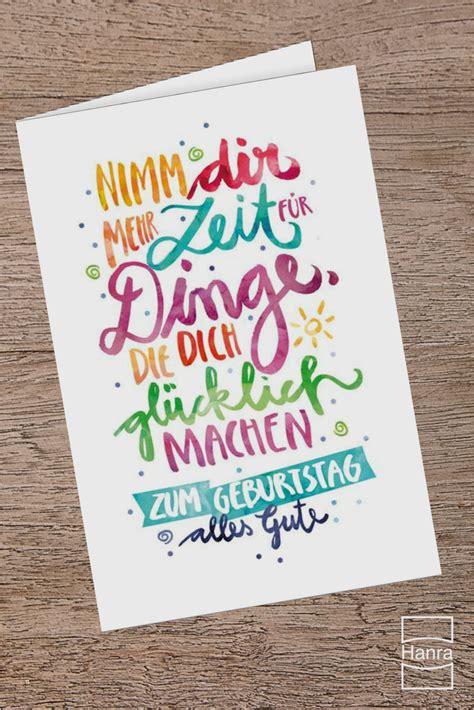 NIMM dir
MEHR Zeit FÜR
Dinge,
DIE DICH
glücklich
MACHEN
ZUM GEBURTSTAG
alles Gute
Hanra